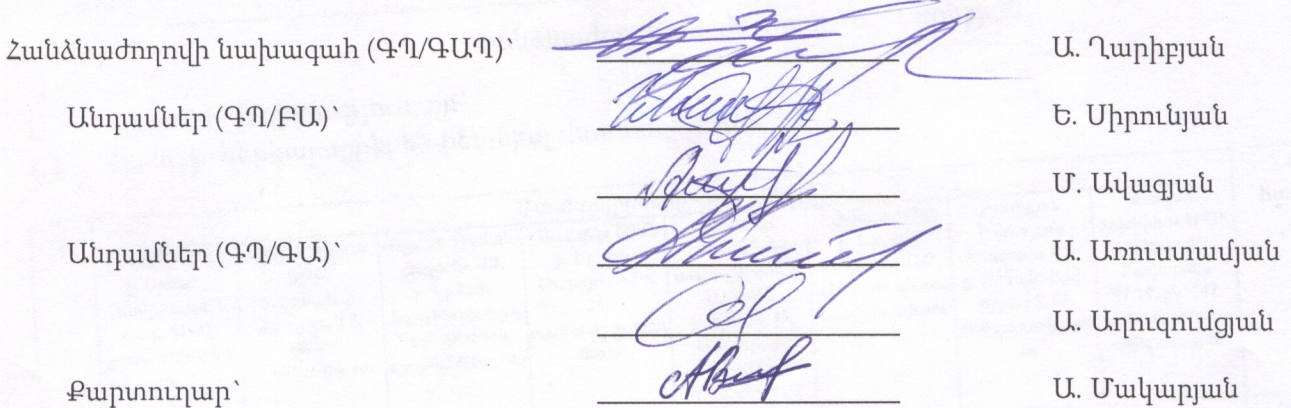 Հանձնաժողովի նախագահ (ԳՊ/ԳԱՊ)՝ Ա. Ղարիբյան
Անդամներ (ԳՊ/ԲԱ)՝ Ե. Սիրունյան
Մ. Ավագյան
Անդամներ (ԳՊ/ԳԱ)՝ Ա. Առուստամյան
Ա. Աղուզումցյան
Քարտուղար՝ Ա. Մակարյան